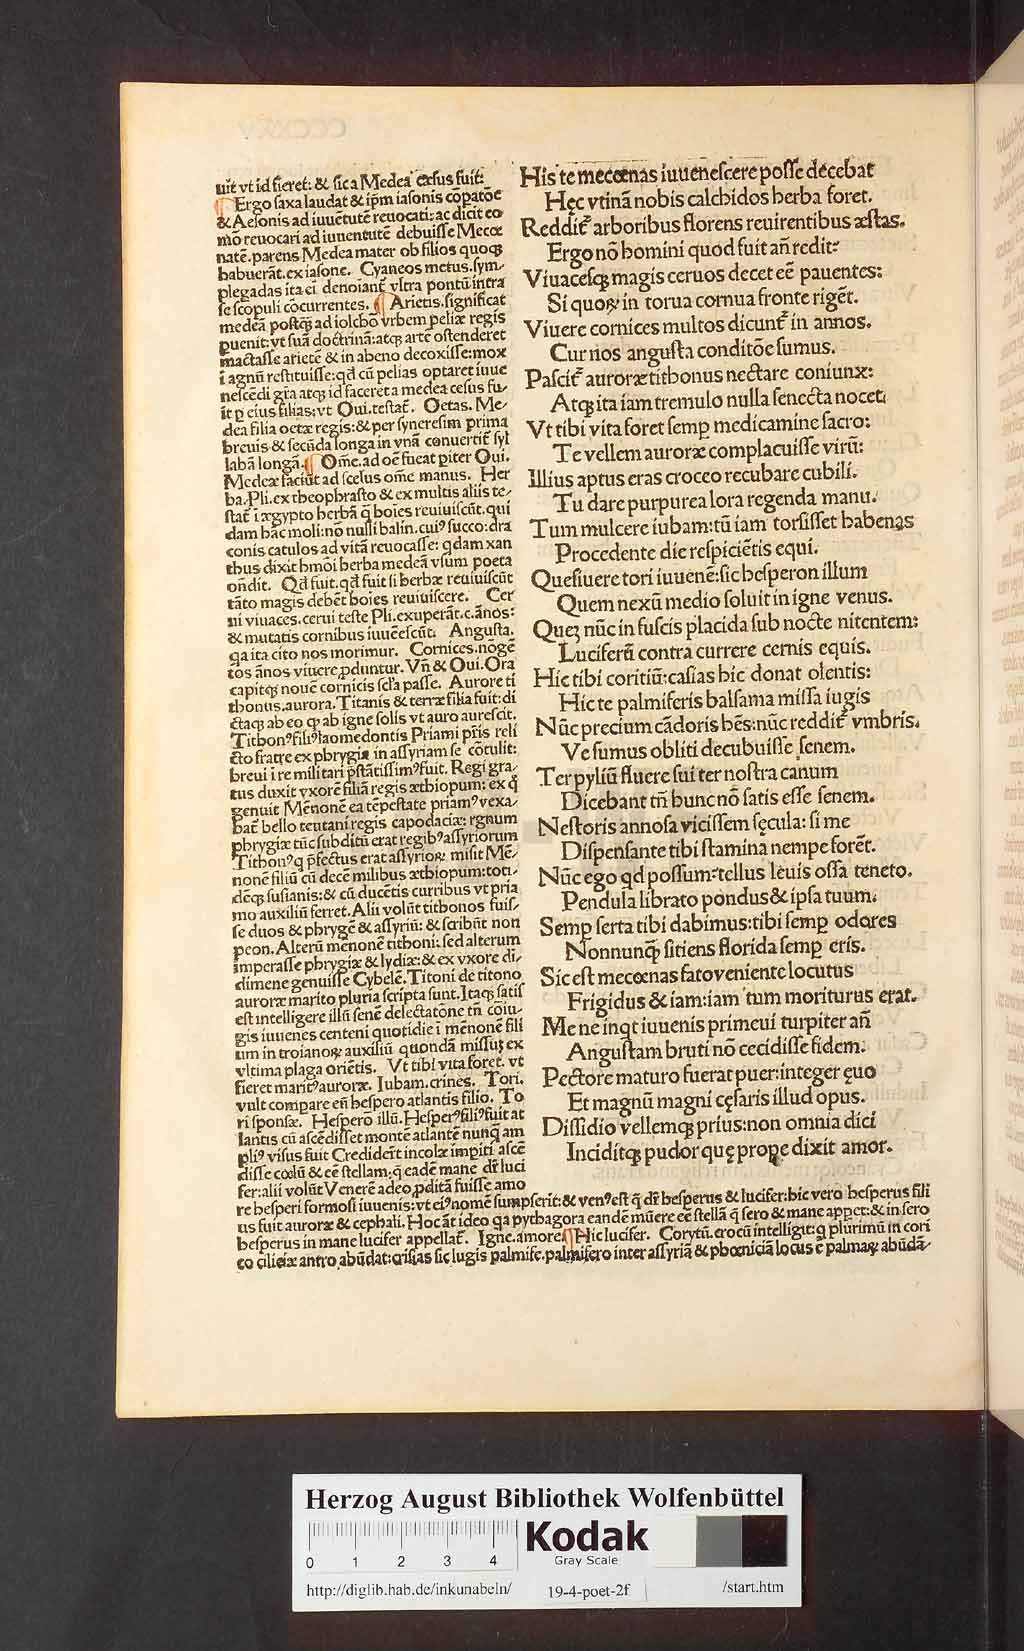 uit vt id fieret: & sic a Medea cæsus fuit:
Ergo saxa laudat & ip̄m iasonis cōpatōe
& Aesonis ad iuuētutē reuocati: ac dicit eo
mō reuocari ad iuuentutē debuisse Mecœ
natē. parens Medea mater ob filios quoqꝫ
habuerāt. ex iasone. Cyaneos metus. sym
plegadas ita ei denoiant̄ vltra pontū intra
se scopuli cōcurrentes. ¶ Arietis. significat
medeā postqꝫ ad iolchō vrbem peliæ regis
puenit: vt suā doctrinā: atqꝫ artē ostenderet
mactasse arietē & in aheno decoxisse: mox
ī agnū restituisse: qd cū pelias optaret iuue
nescēdi gr̄a atqꝫ id faceret a medea cesus fu
it p̱ eius filias: vt Oui. testat̄. Oetas. Me
dea filia oetæ regis: & per syneresim prima
breuis & secūda longa in vnā conuertit̄ syl
labā longā. ¶ Om̄e. ad oē fueat piter Oui.
Medeæ faciūt ad scelus om̄e manus. Her
ba. Pli. ex theophrasto & ex multis aliis te
stat̄ ī ægypto herbā q̄ hoies reuiuiscūt. qui
dam hāc moli: nō nulli balin. cuiꝰ succo: dra
conis catulos ad vitā reuocasse: qdam xan
thus dixit hmōi herba medeā vsum poeta
oñdit. Qd fuit. qd fuit si herbæ reuiuiscūt
tāto magis debēt hoies reuiuiscere. Cer
ui viuaces. cerui teste Pli. exuperāt. c. ānos:
& mutatis cornibus iuuēescūt. Angusta.
qa ita cito nos morimur. Cornices. nōgē
tos ānos viuere p̱duntur. Vn̄ & Oui. Ora
capitqꝫ nouē cornicis sc̄la passe. Aurore ti
thonus. aurora. Titanis & terræ filia fuit: di
ctaqꝫ ab eo qꝫ ab igne solis vt auro aurescit.
Tithonꝰ filiꝰ laomedontis Priami pr̄is reli
cto fratre ex phrygia in assyriam se cōtulit:
breui ī re militari p̄stātissimꝰ fuit. Regi gra
tus duxit vxorē filiā regis æthiopum: ex q̄
genuit Mēnonē ea tēpestate priamꝰ vexa
bat̄ bello teutani regis capodaciæ: rgnum
phrygiæ tūc subditū erat regibꝰ assyriorum
Tithonꝰ q p̄fectus erat assyrioꝝ misit Mē
nonē filiū cū decē milibus æthiopum: toti
dēqꝫ susianis: & cū ducētis curribus vt pria
mo auxiliū ferret. Alii volūt tithonos fuis
se duos & phrygē & assyriū: & scribūt non
peon. Alterū menonē tithoni: sed alterum
imperasse phrygiæ & lydiæ: & ex vxore di
dimene genuisse Cybelē. Titoni de titono
auroræ marito pluria scripta sunt. Itaqꝫ satis
est intelligere illū senē delectatōne tñ cōiu
gis iuuenes centeni quotidie ī mēnonē fili
um in troianoꝝ auxiliū quondā missuꝫ ex
vltima plaga oriētis. Vt tibi vita foret. vt
fieret maritꝰ auroræ. Iubam. crines. Tori.
vult compare eñ hespero atlantis filio. To
ri sponsæ. Hesperō illū. Hesperꝰ filiꝰ fuit at
lantis cū ascēdisset montē atlantē nunqꝫ am
pliꝰ visus fuit Crediderūt incolæ impiti ascē
disse cœlū & eē stellam: q̄ eadē mane dr̄ luci
fer: alii volūt Venerē adeo p̱ditā fuisse amo
re hesperi formosi iuuenis: vt eiꝰ nomē sumpserit: & venꝰ est q̄ dr̄ hesperus & lucifer: hic vero hesperus fili
us fuit auroræ & cephali. Hoc āt ideo qa pythagora eandē mūere eē stellā q̄ sero & mane appet: & in sero
hesperus in mane lucifer appellat̄. Igne. amore. ¶ Hic lucifer. Corytū. crocū intelligit: q plurimū in cori
co ciliciæ antro abūdat: crisias sic iugis palmife. palmifero inter assyriā & phœniciā locus ē palmaꝝ abūdā
His te mecœnas iuuenescere posse decebat
Hęc vtinā nobis calchidos herba foret.
Reddit̄ arboribus florens reuirentibus æstas.
Ergo nō homini quod fuit añ redit:
Viuacesqꝫ magis ceruos decet eē pauentes:
Si quoꝝ in torua cornua fronte rigēt.
Viuere cornices multos dicunt̄ in annos.
Cur nos angusta conditōe sumus.
Pascit̄ auroræ tithonus nectare coniunx:
Atqꝫ ita iam tremulo nulla senecta nocet.
Vt tibi vita foret semp̱ medicamine sacro:
Te vellem auroræ complacuisse virū:
Illius aptus eras croceo recubare cubili.
Tu dare purpurea lora regenda manu.
Tum mulcere iubam: tū iam torsisset habenas
Procedente die respiciētis equi.
Quesiuere tori iuuenē: sic hesperon illum
Quem nexū medio soluit in igne venus.
Queꝫ nūc in fuscis placida sub nocte nitentem:
Luciferū contra currere cernis equis.
Hic tibi coritiū: casias hic donat olentis:
Hic te palmiferis balsama missa iugis
Nūc precium cādoris hēs: nūc reddit̄ vmbris.
Ve sumus obliti decubuisse senem.
Ter pyliū fluere sui ter nostra canum
Dicebant tñ hunc nō satis esse senem.
Nestoris annosa vicissem sęcula: si me
Dispensante tibi stamina nempe forēt.
Nūc ego qd possum: tellus leuis ossa teneto.
Pendula librato pondus & ipsa tuum.
Semp̱ serta tibi dabimus: tibi semp̱ odores
Nonnunqꝫ sitiens florida semp̱ eris.
Sic est mecœnas fato veniente locutus
Frigidus & iam: iam tum moriturus erat.
Me ne inqt iuuenis primeui turpiter añ
Angustam bruti nō cecidisse fidem.
Pectore maturo fuerat puer: integer ęuo
Et magnū magni cęsaris illud opus.
Dissidio vellemqꝫ prius: non omnia dici
Inciditqꝫ pudor quę prope dixit amor.
Herzog August Bibliothek Wolfenbüttel
Kodak
Gray Scale
0 1 2 3 4
http://diglib.hab.de/inkunabeln/ 19-4-poet-2f /start.htm